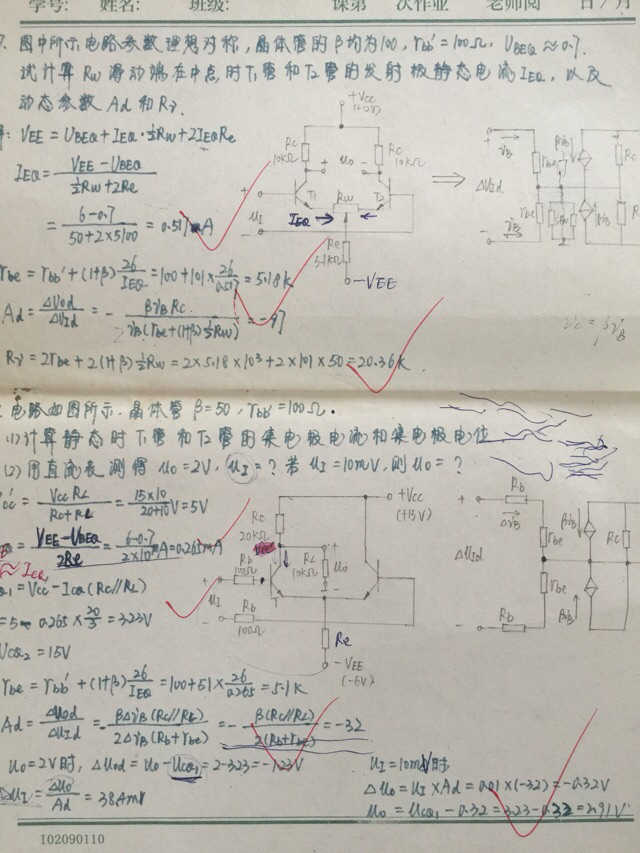 学号: 姓名: 班级: 课第 次作业 老师阅 日/月
图中所示电路参数理想对称,晶体管的β均为100, rbb'=100Ω, UBEQ≈0.7.
试计算Rw滑动端在中点时T1管和T2管的发射极静态电流IEQ, 以及
动态参数Ad和Ri.
解: VEE = UBEQ + IEQ·½Rw + 2IEQRe
IEQ = (VEE - UBEQ)/(½Rw+2Re)
= (6-0.7)/(50+2×5100) = 0.517mA
rbe = rbb' + (1+β)26/IEQ = 100+101×26/0.517 = 5.18K
Ad = ΔUod/ΔUId = - βiBRc/(iB(rbe+(1+β)½Rw)) = -97
Ri = 2rbe + 2(1+β)½Rw = 2×5.18×10³+2×101×50 = 20.36K
+Vcc
Rc
10kΩ
uo
Rc
10kΩ
T1
Rw
T2
uI
IEQ
Re
5.1kΩ
-VEE
⇒
ΔUId
iB
rbe
βiB
Rc
电路如图所示. 晶体管β=50, rbb'=100Ω.
(1)计算静态时T1管和T2管的集电极电流和集电极电位
(2)用直流表测得uo=2V, uI=? 若uI=10mV, 则uo=?
= VccRL/(Rc+RL) = 15×10/(20+10) V = 5V
= (VEE-UBEQ)/2Re = (6-0.7)/(2×10) mA = 0.265mA
≈ICQ1
= Vcc' - ICQ(Rc//RL)
= 5-0.265×20/3 = 3.23V
UCQ2 = 15V
rbe = rbb' + (1+β)26/IEQ = 100+51×26/0.265 = 5.1K
Ad = ΔUod/ΔUId = - βΔiB(Rc//RL)/(2ΔiB(Rb+rbe)) = - β(Rc//RL)/(2(Rb+rbe)) = -32
uo=2V时, ΔUod = uo-UCQ1 = 2-3.23 = -1.23V
ΔUI = ΔUo/Ad = 38.4mV
uI=10mV时
Δuo = uI×Ad = 0.01×(-32) = -0.32V
uo = UCQ1-0.32 = 3.23-0.32 = 2.91V
+Vcc
(+15V)
Rc
20kΩ
RL
10kΩ
uo
Rb
100Ω
uI
Rb
100Ω
Re
-VEE
(-6V)
Rb
ΔiB
ΔUId
rbe
rbe
βiB
Rc
Rb
I02090110